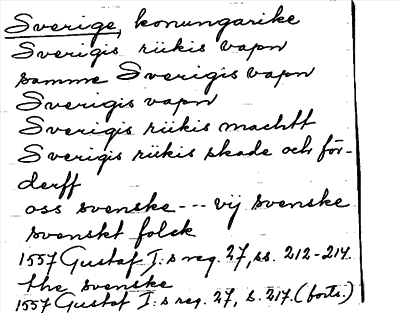 Sverige, konungarike
Sverigis riikis vapn
samme Sverigis vapn
Sverigis vapn
Sverigis riikis machtt
Sverigis riikis skade och för-
derff
oss svenske --- vij svenske
svenskt folck
1557 Gustaf I:s reg. 27, ss. 212-214.
the svenske
1557 Gustaf I:s reg. 27, s. 217. (forts.)